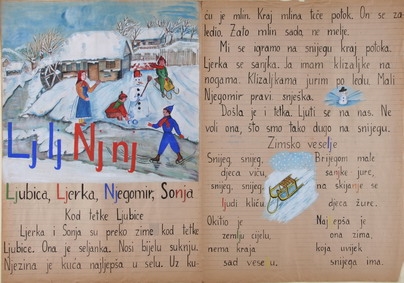 Lj lj Nj nj
Ljubica, Ljerka, Njegomir, Sonja
Kod tetke Ljubice
Ljerka i Sonja su preko zime kod tetke
Ljubice. Ona je seljanka. Nosi bijelu suknju.
Njezina je kuća najljepša u selu. Uz ku-
ću je mlin. Kraj mlina teče potok. On se za
ledio. Zato mlin sada ne melje.
Mi se igramo na snijegu kraj potoka.
Ljerka se sanjka. Ja imam klizaljke na
nogama. Klizaljkama jurim po ledu. Mali
Njegomir pravi snješka.
Došla je i tetka. Ljuti se na nas. Ne
voli ona, što smo tako dugo na snijegu.
Zimsko veselje
Snijeg, snijeg,
djeca viču,
snijeg, snijeg,
ljudi kliču
Okitio je
zemlju cijelu,
nema kraja
sad veselju.
Brijegom male
sanjke jure,
na skijanje se
djeca žure.
Najljepša je
ona zima,
koja uvijek
snijega ima.